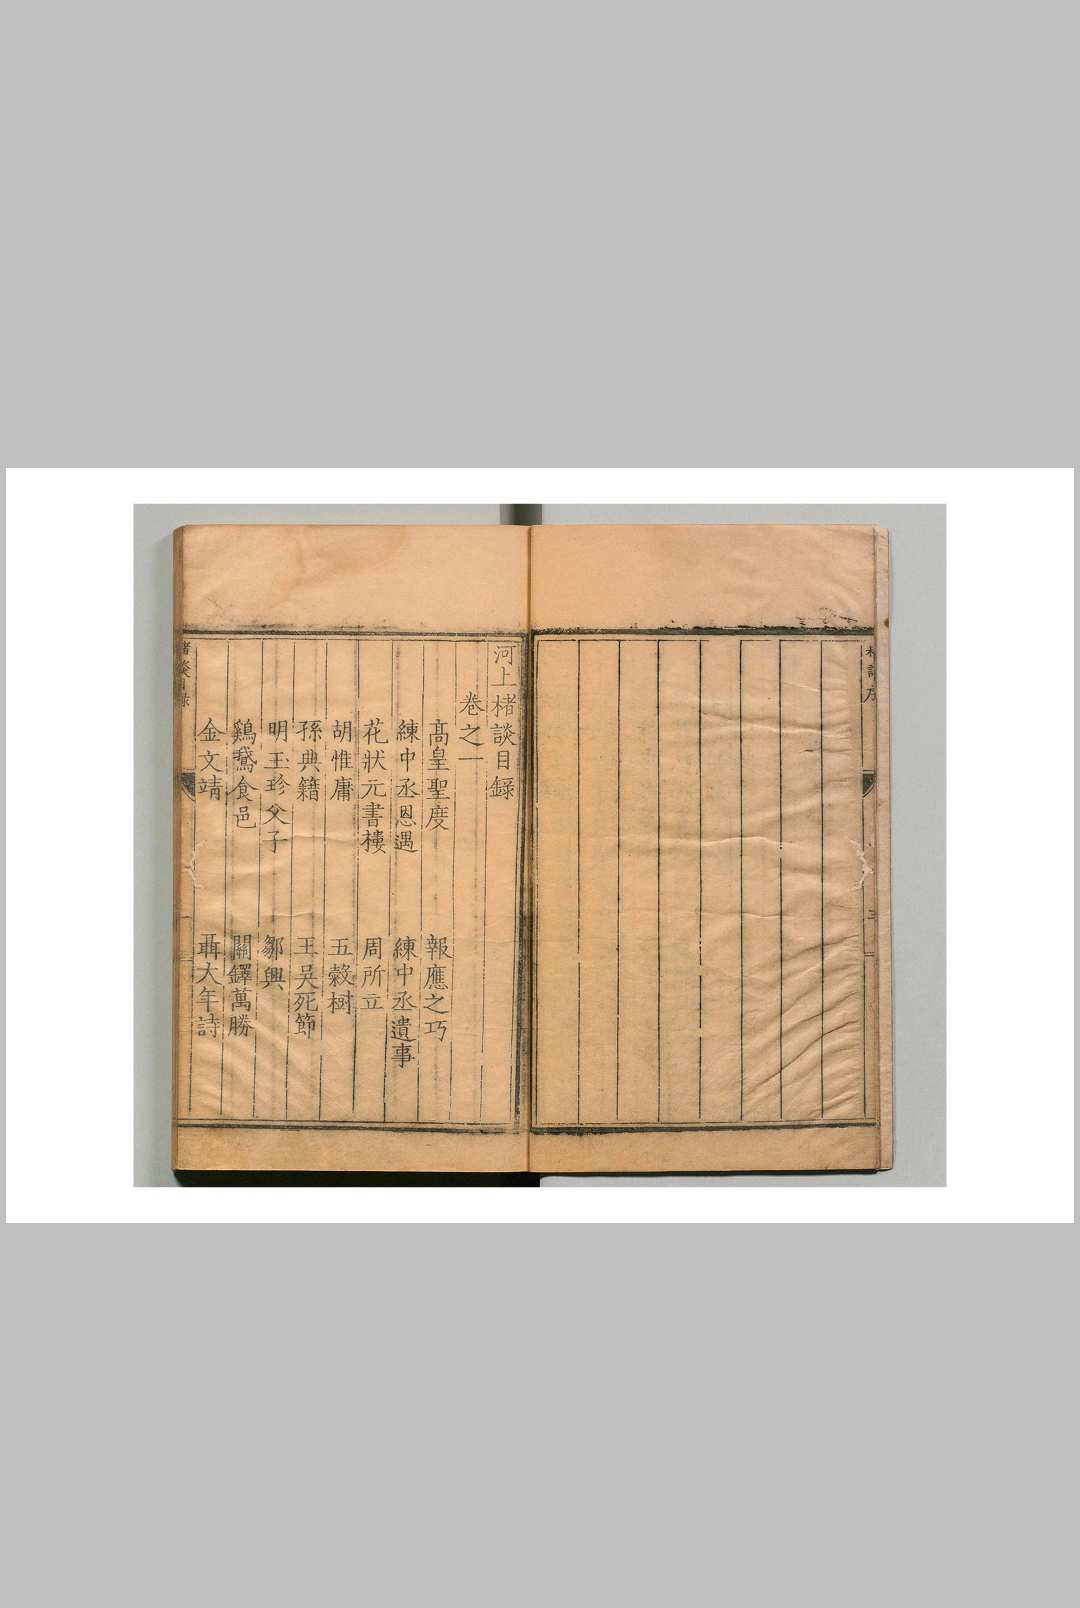 河上楮談目錄
卷之一
高皇聖度 報應之巧
練中丞恩遇 練中丞遺事
花狀元書樓 周所立
胡惟庸 五穀樹
孫典籍 王吳死節
明玉珍父子 鄒興
鷄鵞食邑 關鐸萬勝
金文靖 聶大年詩
楮談目錄